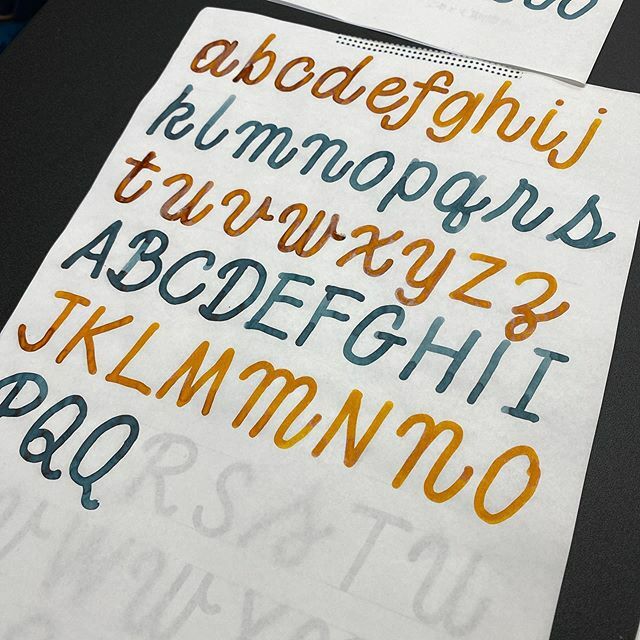 abcdefghij
klmnopqrs
tuvwxyzz
ABCDEFGHII
JKLMMNNO
PQQRSSTU
VWW